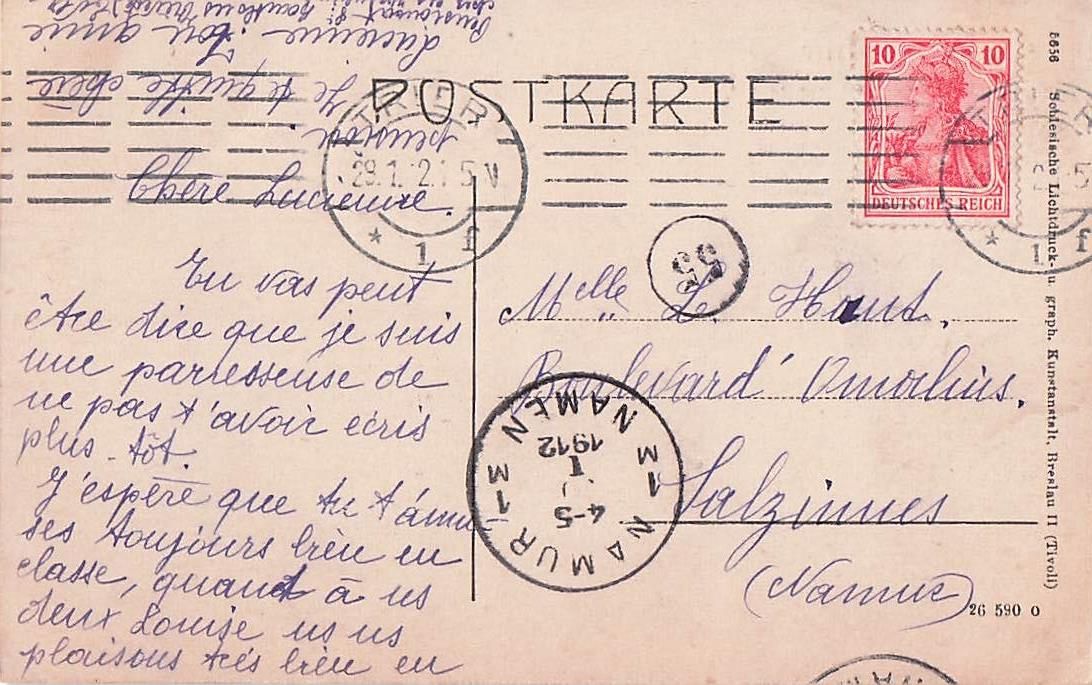 POSTKARTE
TRIER
29.1.12.1-5V
* 1 f
10 10
DEUTSCHES REICH
Chère Lucienne.
Tu vas peut
être dire que je suis
une parresseuse de
ne pas t'avoir écris
plus tôt.
J'espère que tu t'amu-
ses toujours bien en
classe, quand à us
deux Louise us us
plaisons très bien en
pension
Je te quitte chère
Lucienne Ton amie
Melle L. Haut.
Boulevard
Salzinnes
(Namur)
55
NAMUR 1 M NAMEN M 1
4-5
I
1912
5656 Schlesische Lichtdruck- u. graph. Kunstanstalt, Breslau II (Tivoli)
26 590 o